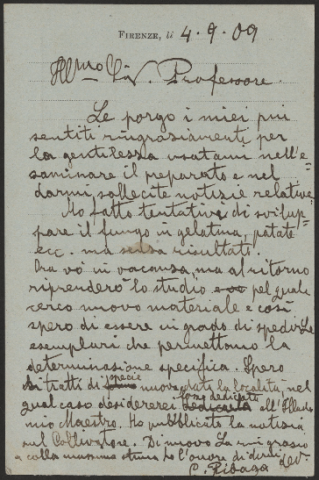 FIRENZE, li 4.9.09
Illmo Sig. Professore.
Le porgo i miei più
sentiti ringraziamenti per
la gentilezza usatami nell'e-
saminare il preparato e nel
darmi sollecite notizie relative.
Ho fatto tentativi di svilup-
pare il fungo in gelatina, patate
ecc. ma senza risultati.
Ora vò in vacanza, ma al ritorno
riprenderò lo studio pel quale
cerco nuovo materiale e così
spero di essere in grado di spedirLe
esemplari che permettono la
determinazione specifica. Spero
si tratti di specie nuova data la località, nel
qual caso desidererei fosse dedicata all'Illustre
mio Maestro. Ho pubblicato la notizia
sul Coltivatore. Di nuovo La ringrazio
e colla massima stima ho l'onore di dirmi
C. Ribaga